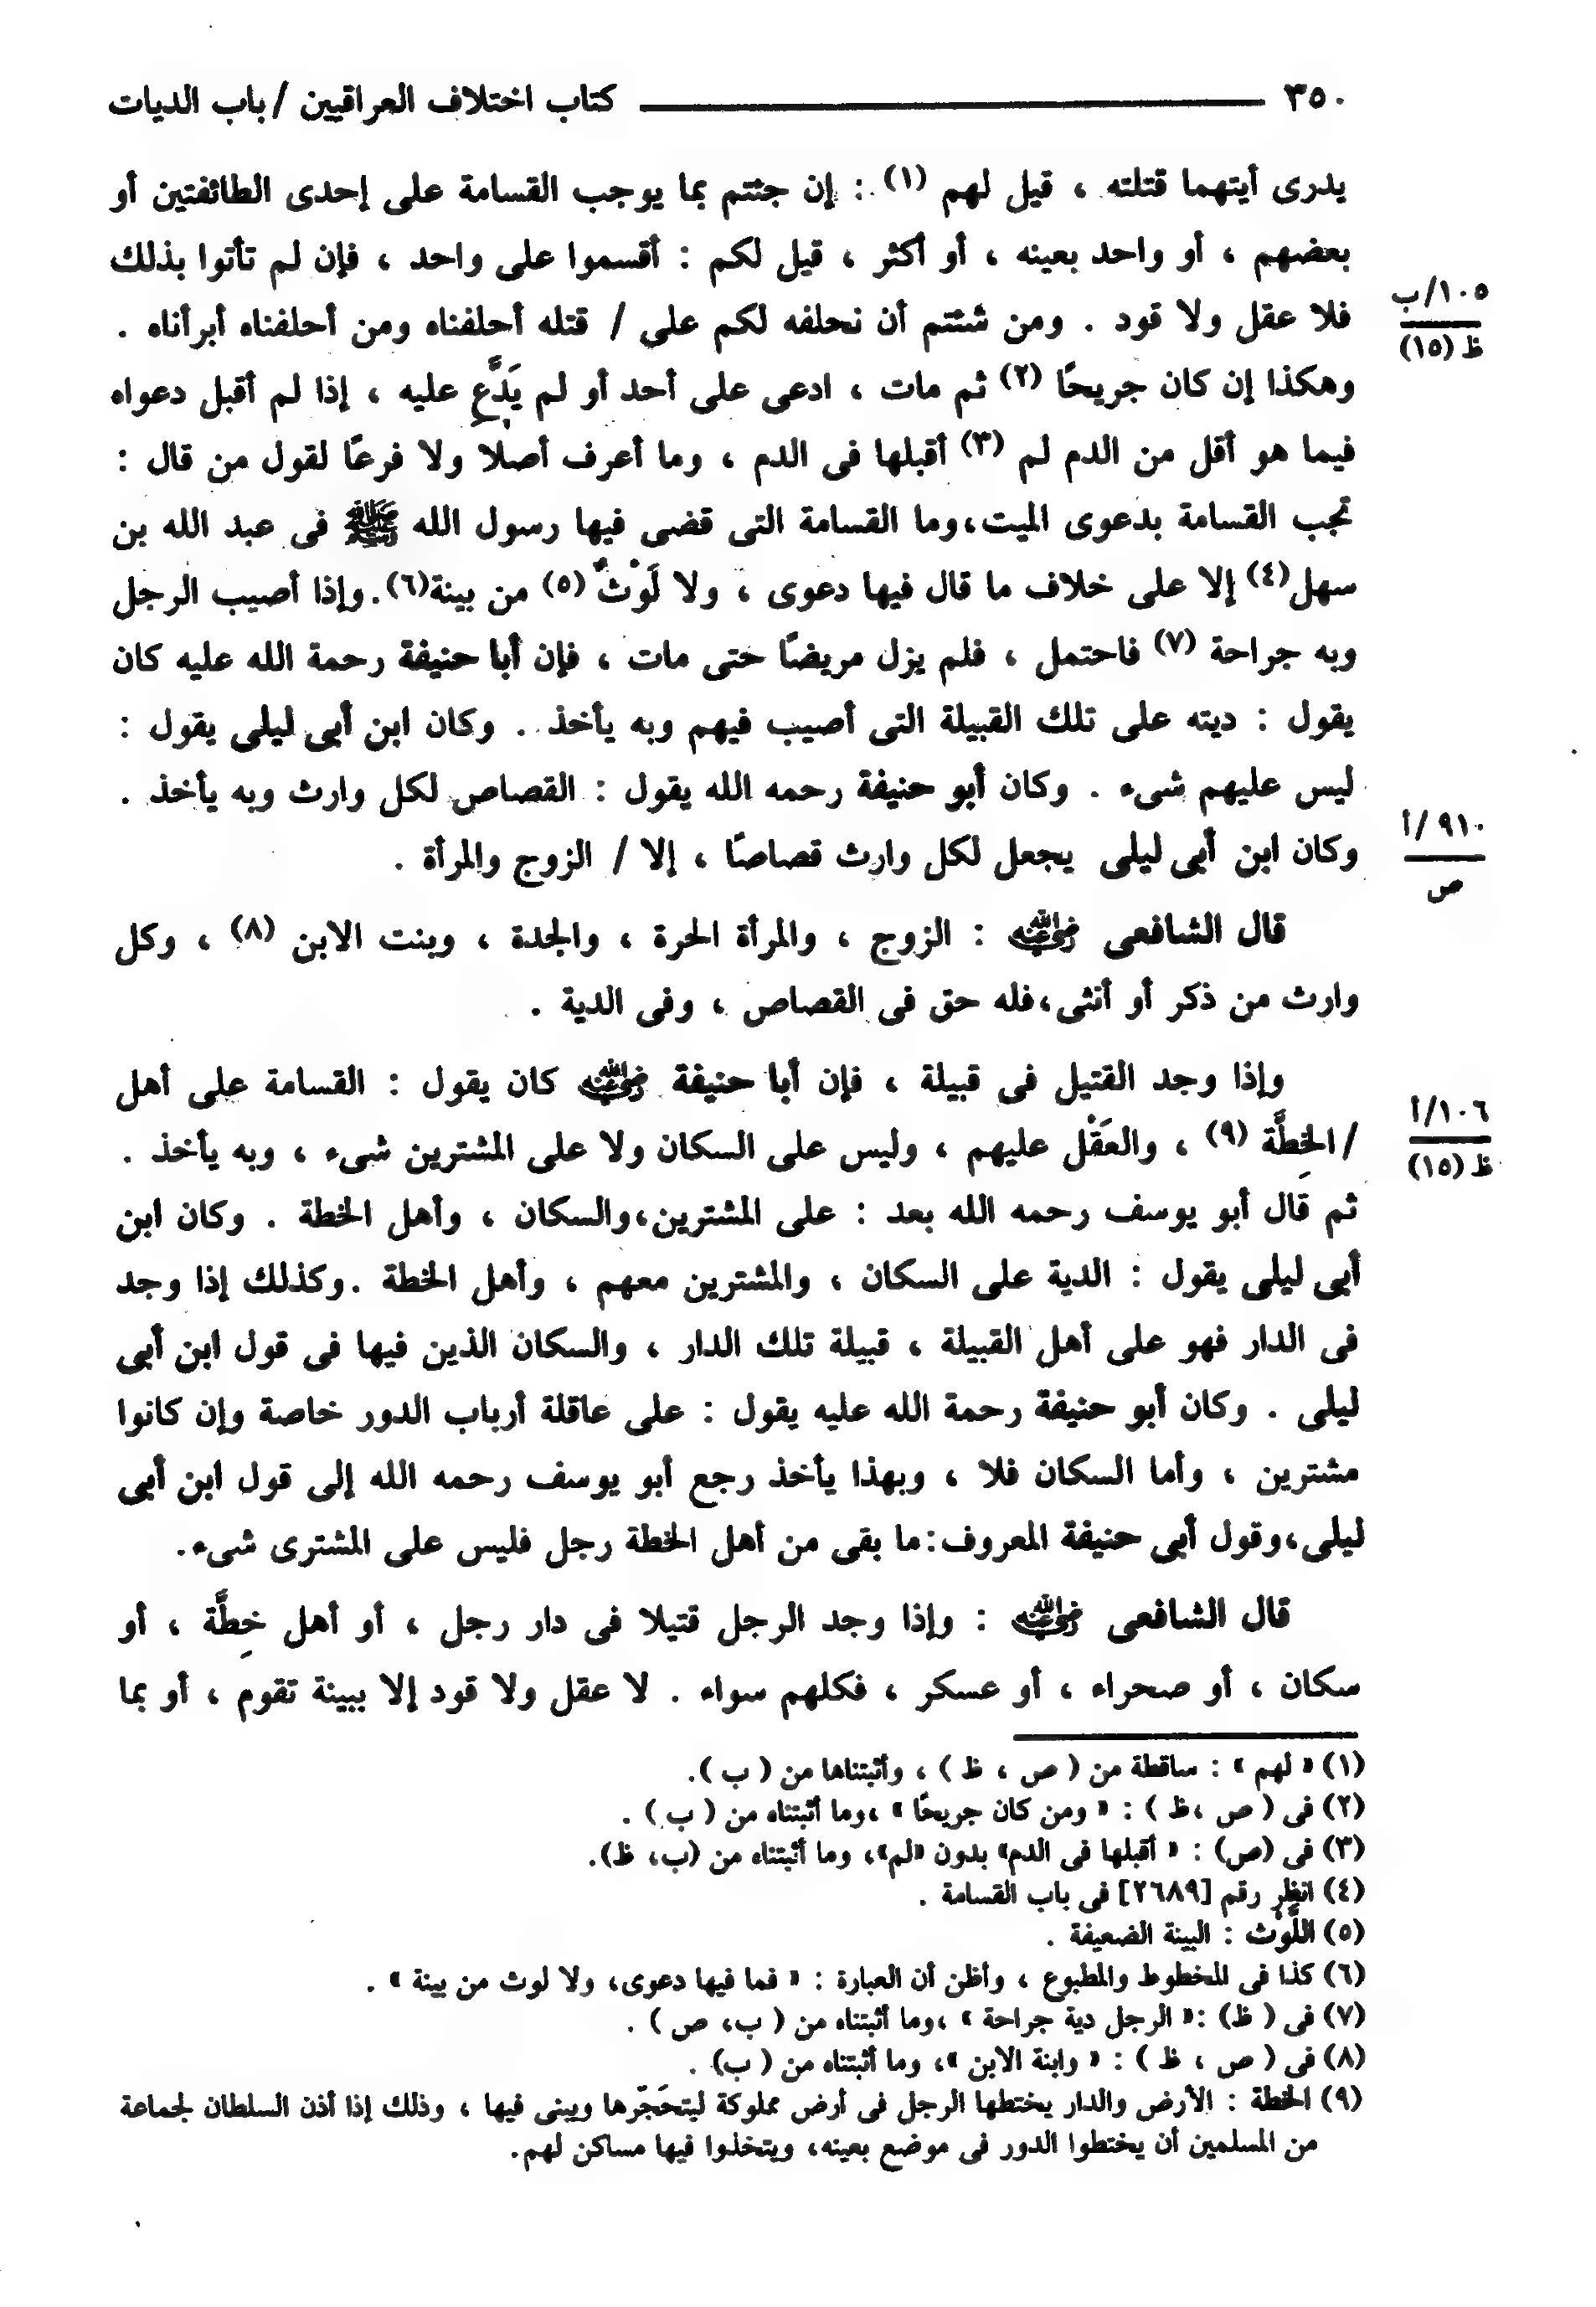 ٣٥٠ ــــــــــــــــــــ كتاب اختلاف العراقيين / باب الديات
يدرى أيتهما قتلته ، قيل لهم (١) : إن جئتم بما يوجب القسامة على إحدى الطائفتين أو
بعضهم ، أو واحد بعينه ، أو أكثر ، قيل لكم : أقسموا على واحد ، فإن لم تأتوا بذلك
فلا عقل ولا قود . ومن شئتم أن نحلفه لكم على / قتله أحلفناه ومن أحلفناه أبرأناه .
١٠٥/ب
ظ (١٥)
وهكذا إن كان جريحًا (٢) ثم مات ، ادعى على أحد أو لم يَدَّعِ عليه ، إذا لم أقبل دعواه
فيما هو أقل من الدم لم (٣) أقبلها فى الدم ، وما أعرف أصلا ولا فرعًا لقول من قال :
تجب القسامة بدعوى الميت،وما القسامة التى قضى فيها رسول الله ﷺ فى عبد الله بن
سهل(٤) إلا على خلاف ما قال فيها دعوى ، ولا لَوْثٌ (٥) من بينة(٦).وإذا أصيب الرجل
وبه جراحة (٧) فاحتمل ، فلم يزل مريضًا حتى مات ، فإن أبا حنيفة رحمة الله عليه كان
يقول : ديته على تلك القبيلة التى أصيب فيهم وبه يأخذ . وكان ابن أبى ليلى يقول :
ليس عليهم شىء . وكان أبو حنيفة رحمه الله يقول : القصاص لكل وارث وبه يأخذ .
وكان ابن أبى ليلى يجعل لكل وارث قصاصًا ، إلا / الزوج والمرأة .
٩١٠/أ
ص
قال الشافعى رضي الله عنه : الزوج ، والمرأة الحرة ، والجدة ، وبنت الابن (٨) ، وكل
وارث من ذكر أو أنثى،فله حق فى القصاص ، وفى الدية .
وإذا وجد القتيل فى قبيلة ، فإن أبا حنيفة رضي الله عنه كان يقول : القسامة على أهل
/الخِطَّة (٩) ، والعَقْل عليهم ، وليس على السكان ولا على المشترين شىء ، وبه يأخذ .
١٠٦/أ
ظ (١٥)
ثم قال أبو يوسف رحمه الله بعد : على المشترين،والسكان ، وأهل الخطة . وكان ابن
أبى ليلى يقول : الدية على السكان ، والمشترين معهم ، وأهل الخطة .وكذلك إذا وجد
فى الدار فهو على أهل القبيلة ، قبيلة تلك الدار ، والسكان الذين فيها فى قول ابن أبى
ليلى . وكان أبو حنيفة رحمة الله عليه يقول : على عاقلة أرباب الدور خاصة وإن كانوا
مشترين ، وأما السكان فلا ، وبهذا يأخذ رجع أبو يوسف رحمه الله إلى قول ابن أبى
ليلى،وقول أبى حنيفة المعروف:ما بقى من أهل الخطة رجل فليس على المشترى شىء.
قال الشافعى رضي الله عنه : وإذا وجد الرجل قتيلا فى دار رجل ، أو أهل خِطَّة ، أو
سكان ، أو صحراء ، أو عسكر ، فكلهم سواء . لا عقل ولا قود إلا ببينة تقوم ، أو بما
(١) « لهم » : ساقطة من ( ص ، ظ ) ، وأثبتناها من ( ب ).
(٢) فى ( ص ،ظ ) : « ومن كان جريحًا » ،وما أثبتناه من ( ب ) .
(٣) فى (ص) : « أقبلها فى الدم» بدون «لم»، وما أثبتناه من (ب، ظ).
(٤) انظر رقم [٢٦٨٩] فى باب القسامة .
(٥) اللَّوْث : البينة الضعيفة .
(٦) كذا فى المخطوط والمطبوع ، وأظن أن العبارة : « فما فيها دعوى، ولا لوث من بينة » .
(٧) فى ( ظ) :« الرجل دية جراحة » ،وما أثبتناه من ( ب، ص ) .
(٨) فى ( ص ، ظ ) : « وابنة الابن »، وما أثبتناه من ( ب) .
(٩) الخطة : الأرض والدار يختطها الرجل فى أرض مملوكة ليتحَجّرها ويبنى فيها ، وذلك إذا أذن السلطان لجماعة
من المسلمين أن يختطوا الدور فى موضع بعينه، ويتخذوا فيها مساكن لهم.